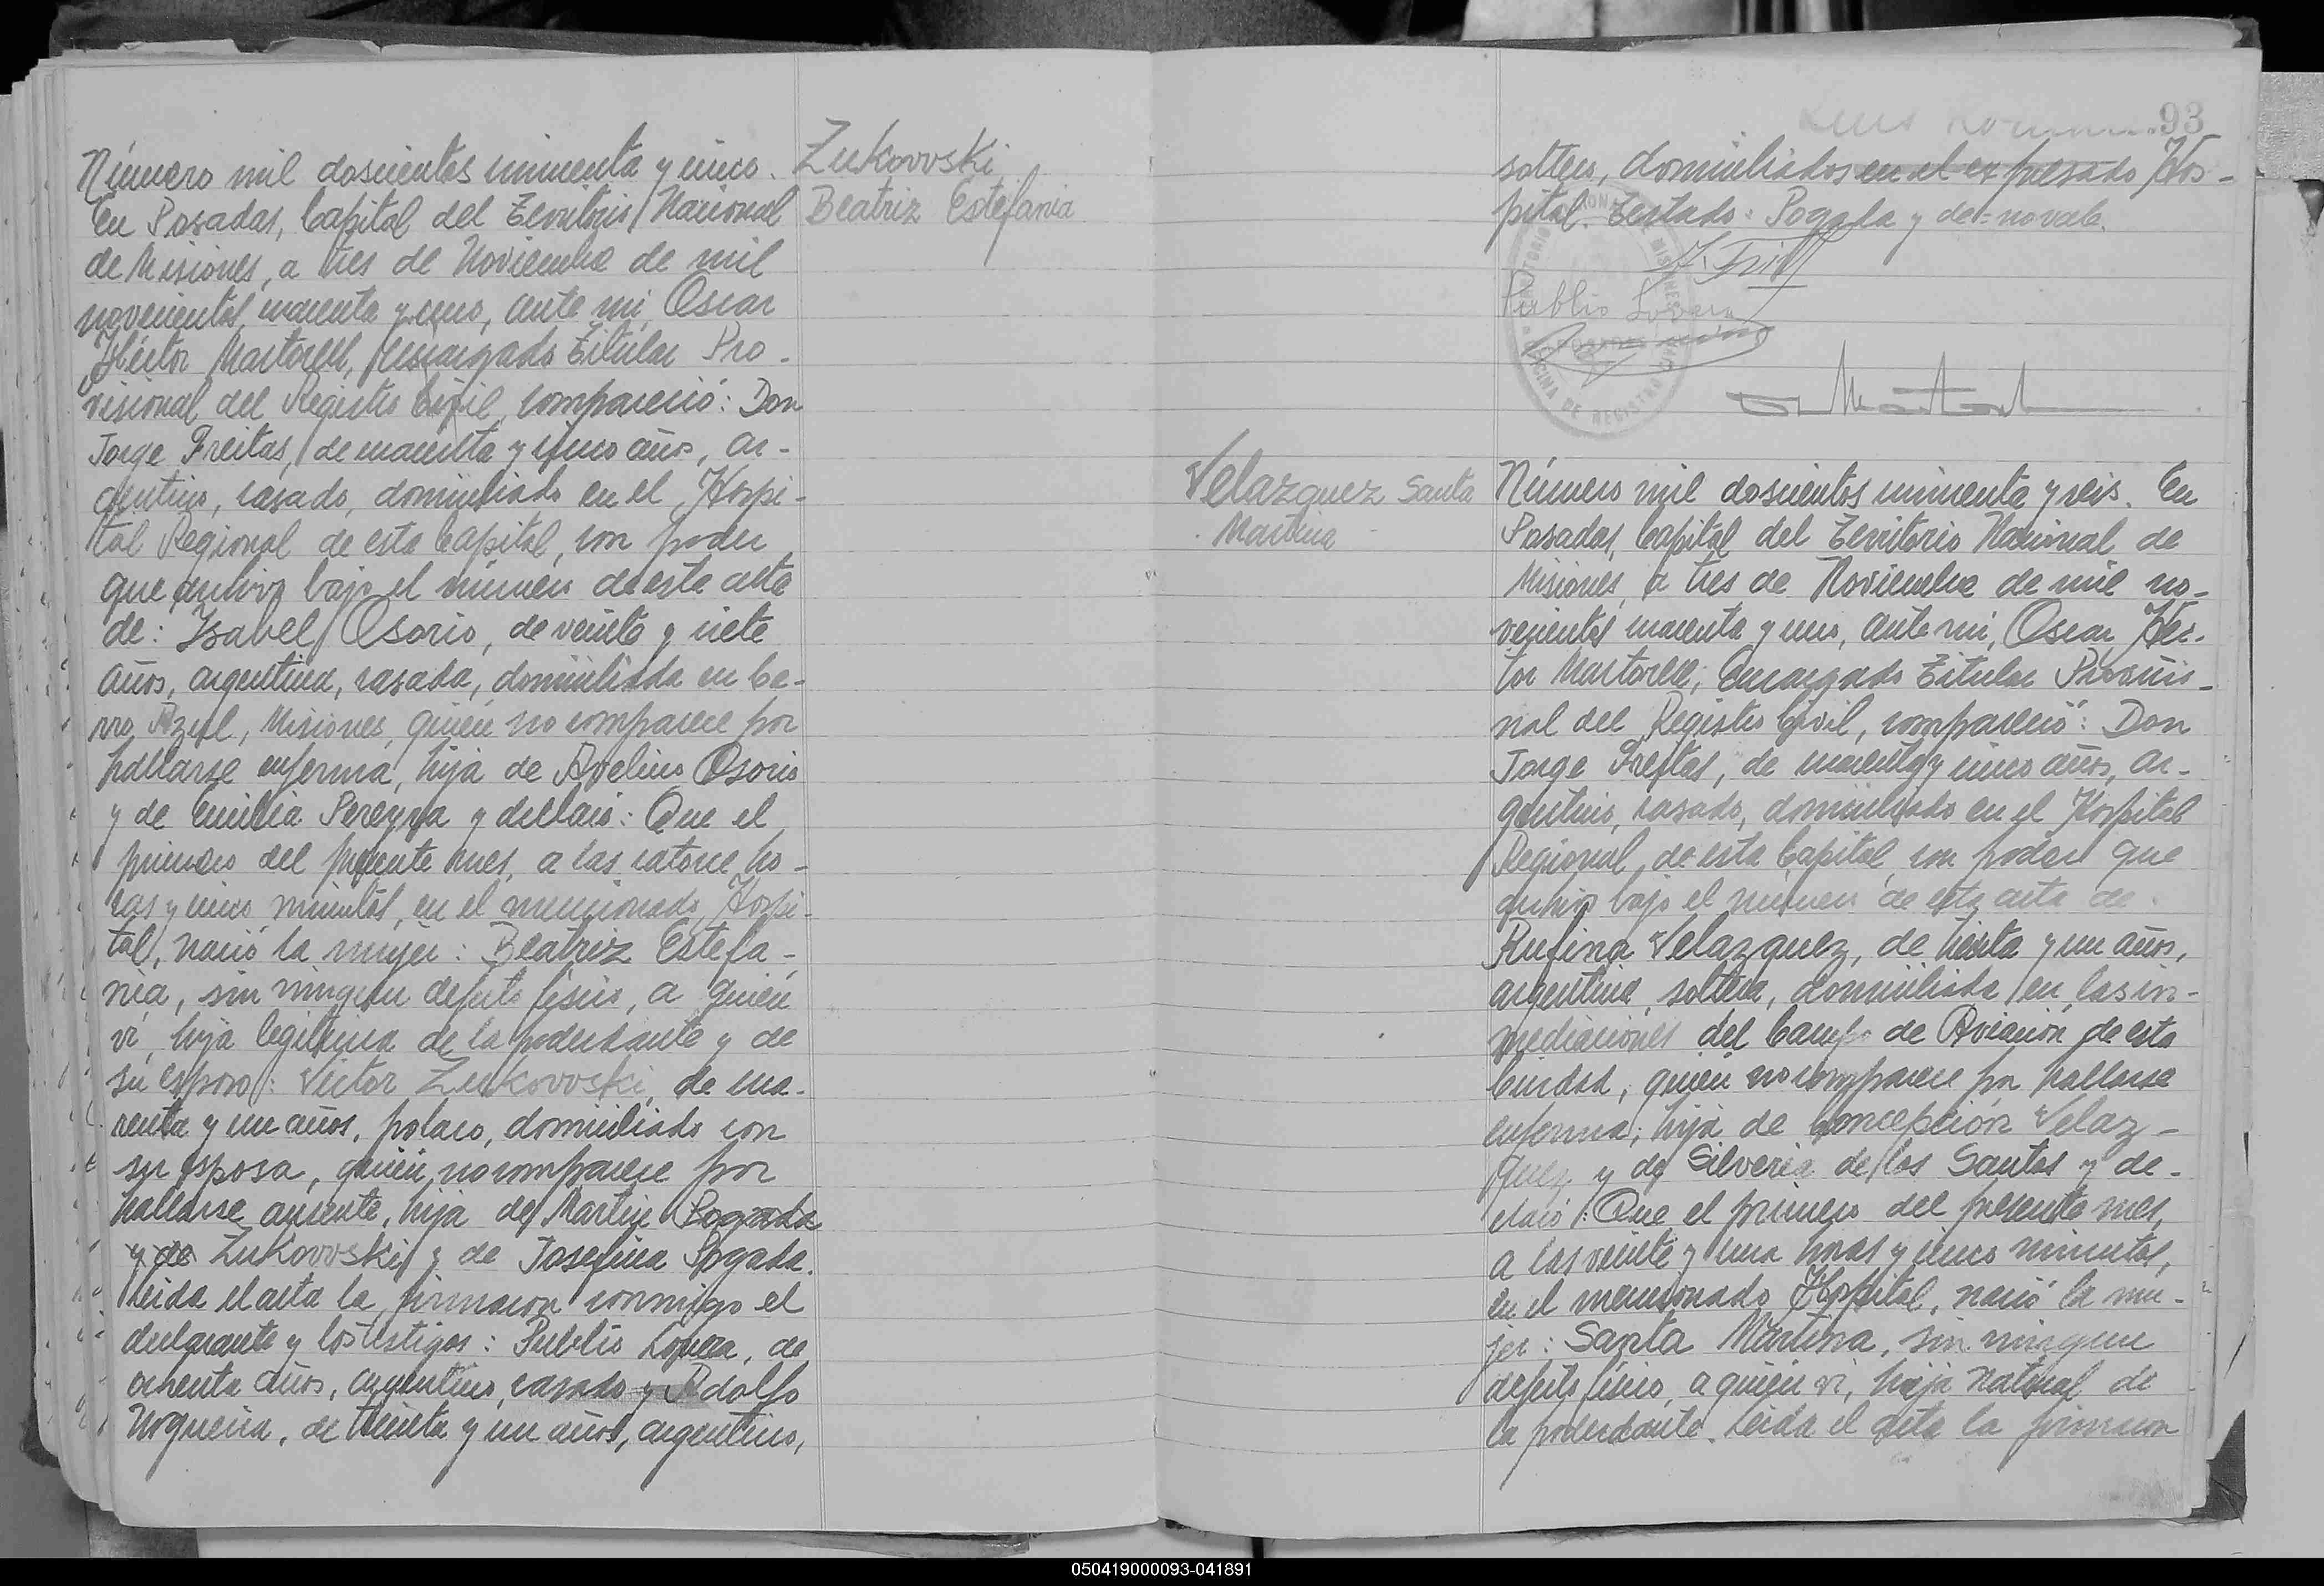 Número mil doscientos cincuenta y cinco.
En Posadas, Capital del Territorio Nacional
de Misiones, a tres de Noviembre de mil
novecientos cuarenta y uno, ante mi, Oscar
Héctor Martorell, Encargado Titular Pro-
visional del Registro Civil, compareció: Don
Jorge Freitas, de cuarenta y cinco años, ar-
gentino, casado, domiciliado en el Hospi-
tal Regional de esta Capital, con poder
que archivo bajo el número de esta acta
de: Isabel Osorio, de veinte y siete
años, argentina, casada, domiciliada en Ce-
rro Azul, Misiones, quien no comparece por
hallarse enferma, hija de Avelino Osorio
y de Emilia Pereyra y declaró: Que el
primero del presente mes, a las catorce ho-
ras y cinco minutos, en el mencionado Hospi-
tal, nació la mujer: Beatriz Estefa-
nia, sin ningun defecto físico, a quien
vi, hija legitima de la poderdante y de
su esposo: Victor Zukovvski, de cua-
renta y un años, polaco, domiciliado con
su esposa, quien no comparece por
hallarse ausente, hijo de Martin Pogada
y de Zukovvski y de Josefina Pogada.
Leida el acta la firmaron conmigo el
declarante y los testigos: Publio Lovera, de
ochenta años, argentino, casado y Adolfo
Nogueira, de treinta y un años, argentino,
Zukovvski
Beatriz Estefania
93
soltero, domiciliados en el expresado Hos-
pital. Testado: Pogada y de=no vale.
Publio Lovera
OFICINA DE REGISTRO
Velazquez Santa
Martina
Número mil doscientos cincuenta y seis. En
Posadas, Capital del Territorio Nacional de
Misiones, a tres de Noviembre de mil no-
vecientos cuarenta y uno, ante mi, Oscar Héc-
tor Martorell, Encargado Titular Provisio-
nal del Registro Civil, compareció: Don
Jorge Freitas, de cuarenta y cinco años, ar-
gentino, casado, domiciliado en el Hospital
Regional, de esta Capital, con poder que
archivo bajo el número de esta acta de
Rufina Velazquez, de treinta y un años,
argentina, soltera, domiciliada en las in-
mediaciones del Campo de Aviación de esta
Ciudad, quien no comparece por hallarse
enferma; hija de Concepción Velaz-
quez y de Silveria de los Santos y de-
claró: Que el primero del presente mes,
a las veinte y una horas y cinco minutos,
en el mencionado Hospital, nació la mu-
jer: Santa Martina, sin ningun
defecto físico, a quien vi, hija natural de
la poderdante. Leida el acta la firmaron
050419000093-041891